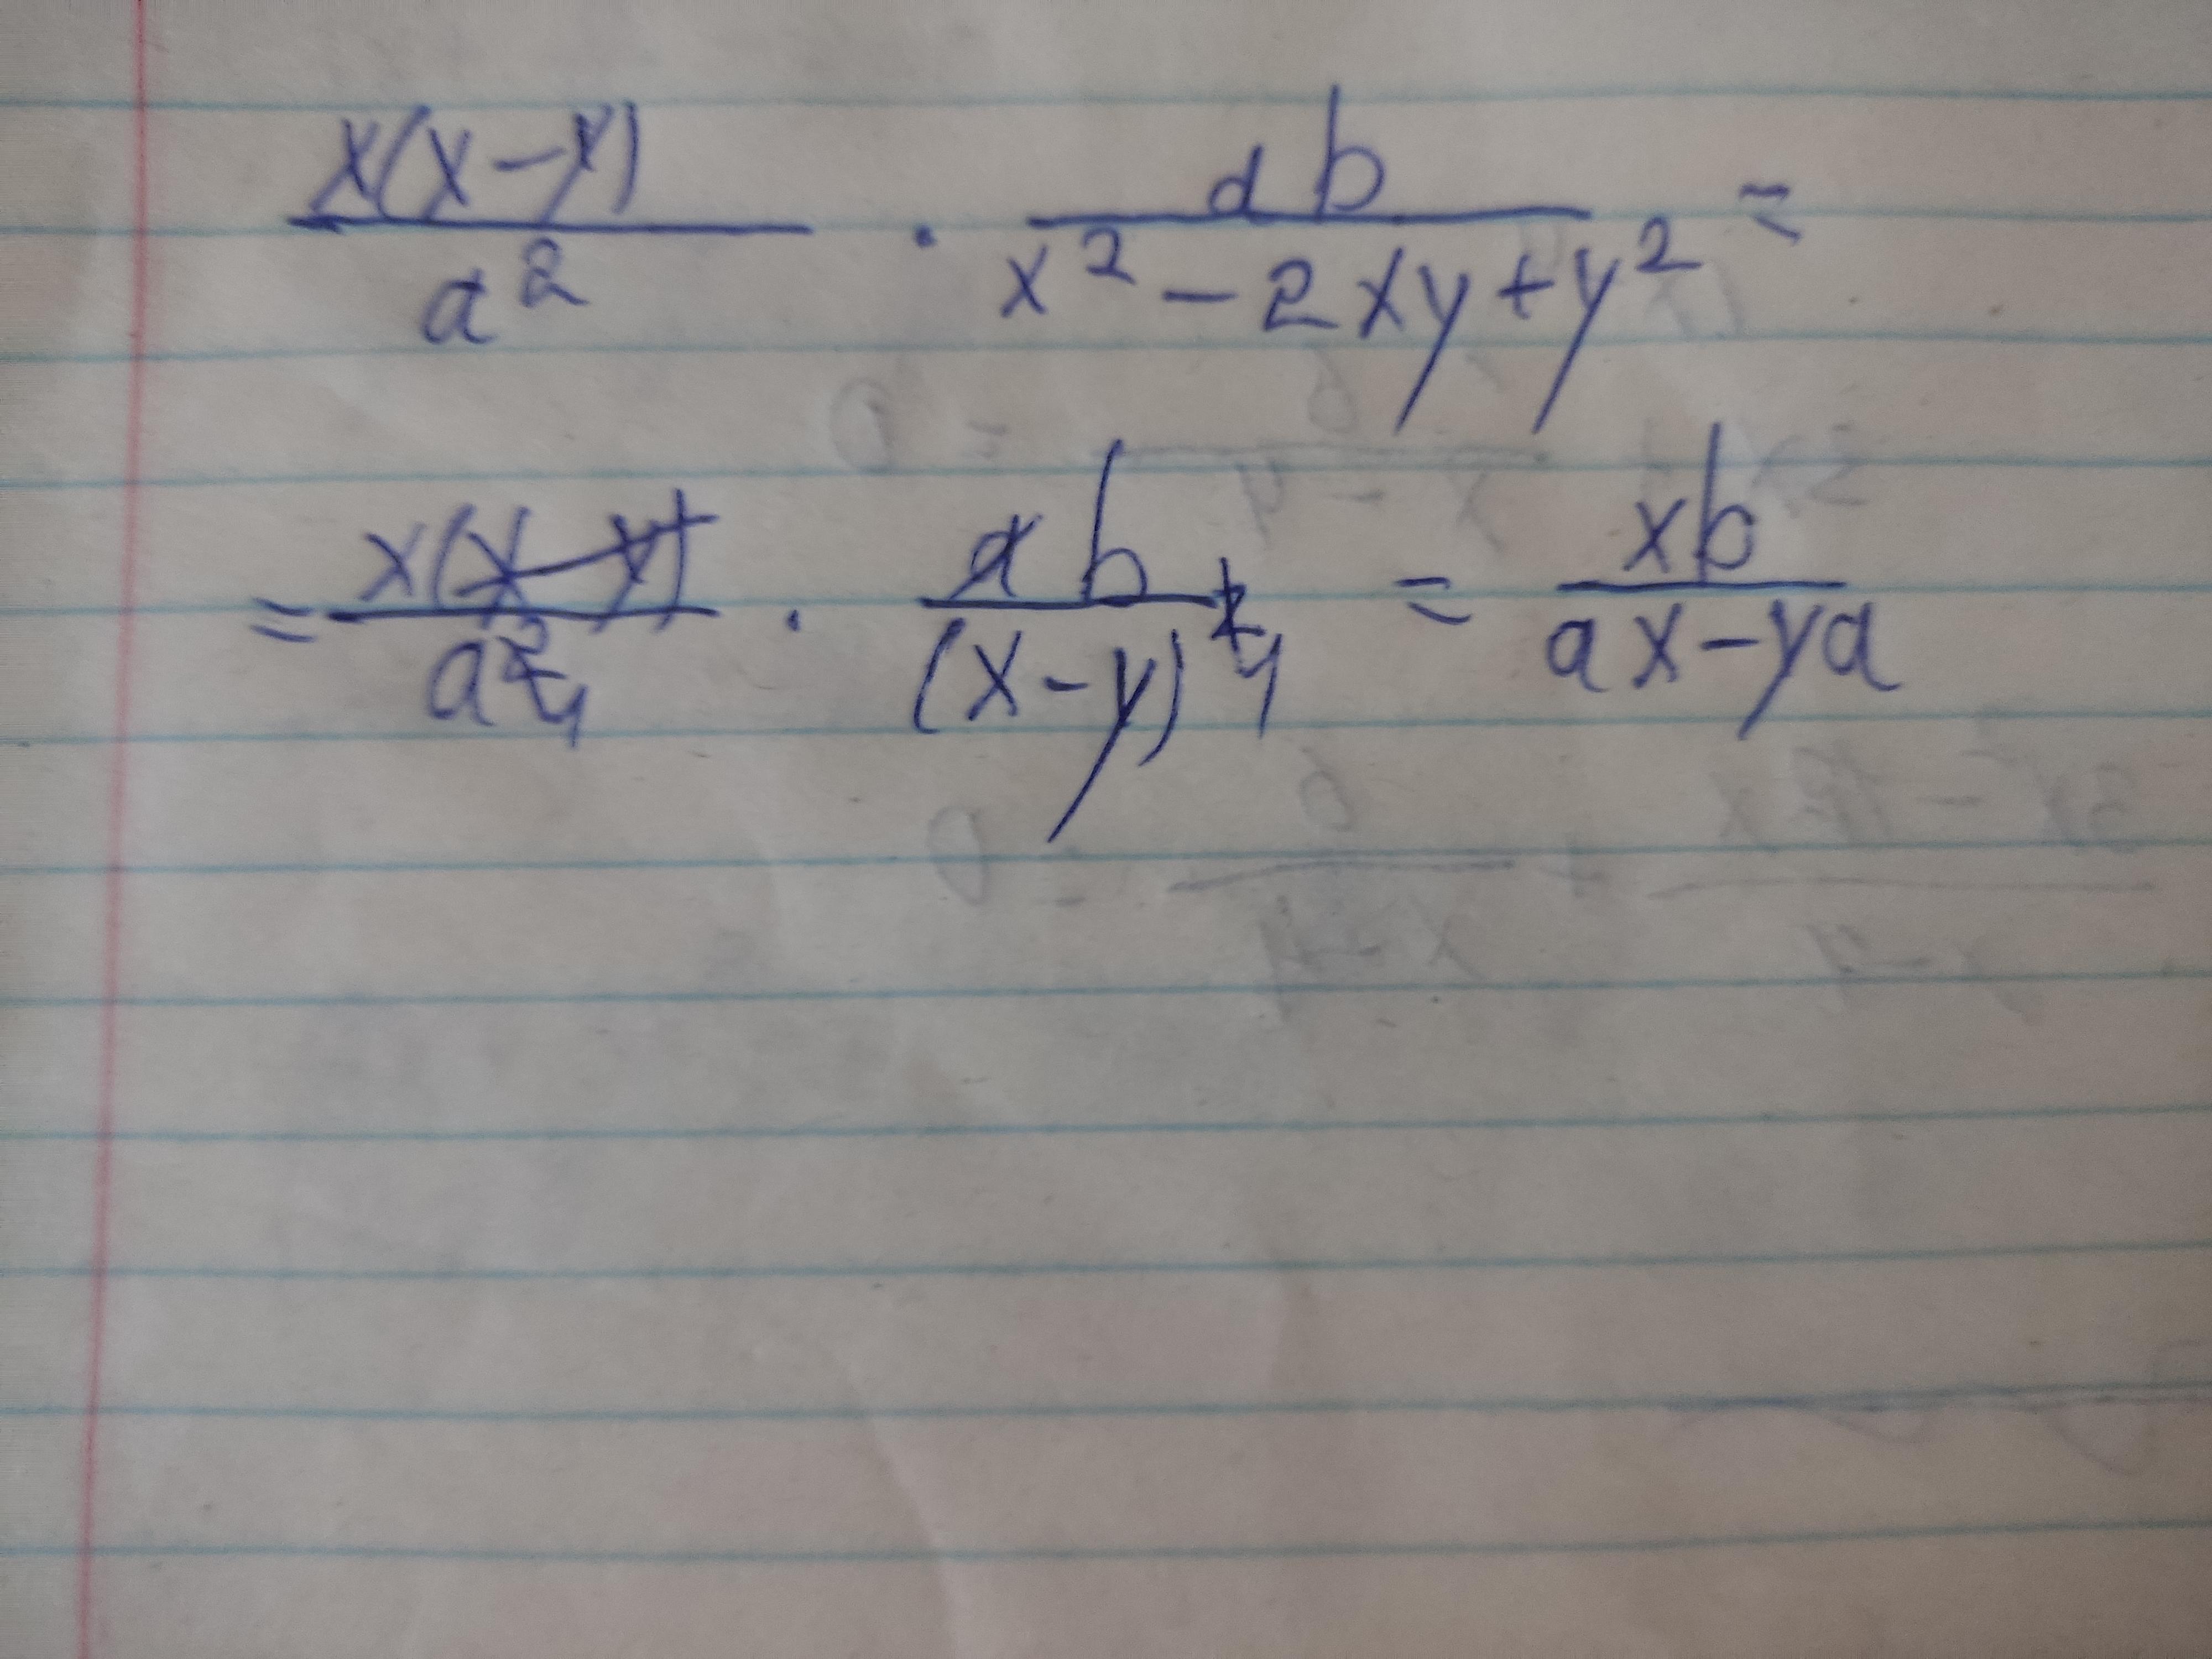 x(x-y)/a² · ab/(x²-2xy+y²) =
= x(x-y)/a² 1 · ab/(x-y)² 1 = xb/(ax-ya)